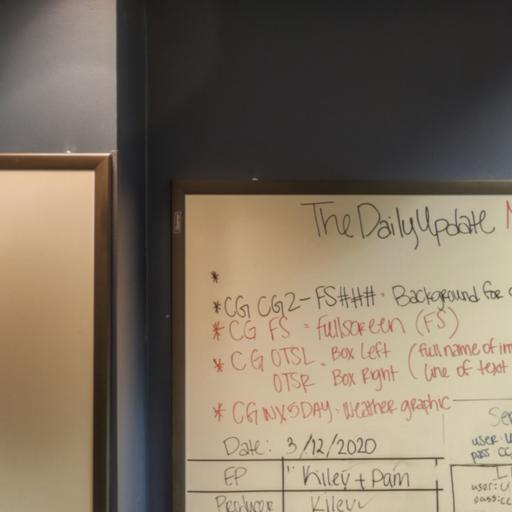 The Daily Update
*
* CG CG2 - FS### - Background for
* CG FS = fullscreen (FS)
* CG OTSL - Box Left (full name of
OTSR Box Right (line of text
* CG WX5DAY - Weather graphic
Date: 3/12/2020
EP " Kiley + Pam
Producer Kiley
user:
pass:
user:
pass: